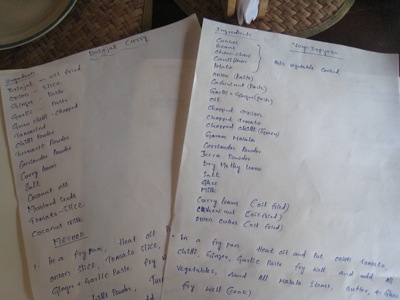 Brinjal Curry
Ingredients
Brinjal - oil fried
onion - slice
Ginger - paste
Garlic - paste
Green chilli - chopped
Tamarind
Chilli Powder
Turmeric Powder
Corriander Powder
Curry leaves
Salt
Coconut oil
Mustard Seeds
Tomato - slice
Coconut milk
METHOD
In a fry pan, Heat oil
onion slice, Tomato slice,
Ginger + Garlic Paste. fry
chilli Powder,
Ingredients
Carrot
Beans
Cauliflower
Potato
vegetable cooked
onion (Paste)
Cashewnut (Paste)
Garlic + Ginger (Paste)
oil
Chopped onion
Chopped tomato
Chopped chilli (Green)
Garam Masala
Corriander Powder
Jeera Powder
Dry Methy leaves
Salt
Milk
Curry leaves (oil fried)
Cashewnut (oil fried)
(oil fried)
In a fry pan Heat oil and let onion, Tomato,
chilli, Ginger, Garlic Paste fry well and add all
Vegetables, and All Masala Items, Butter,
fry well (cook)